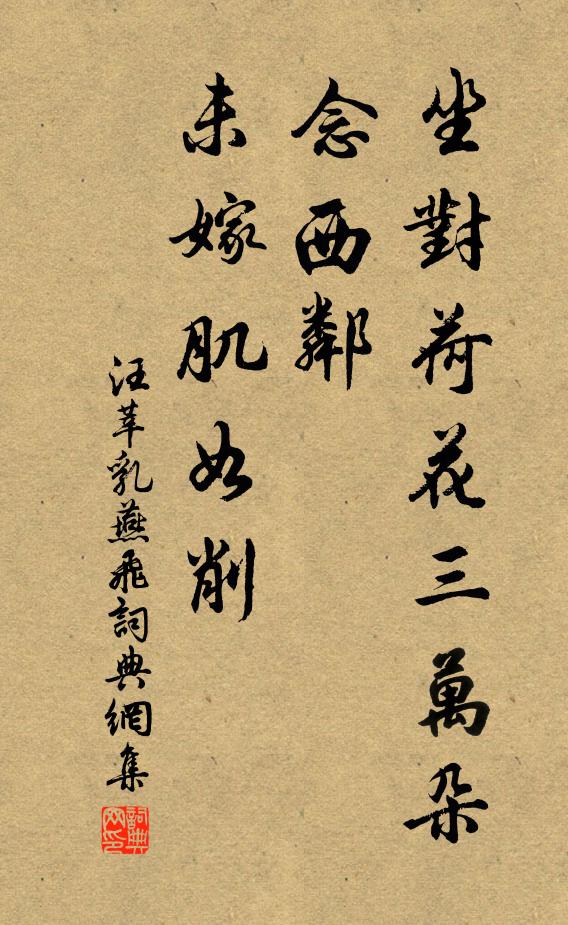 坐對荷花三萬朵
念西鄰
未嫁肌如削
汪莘乳燕飛詞典網集
詞典網印